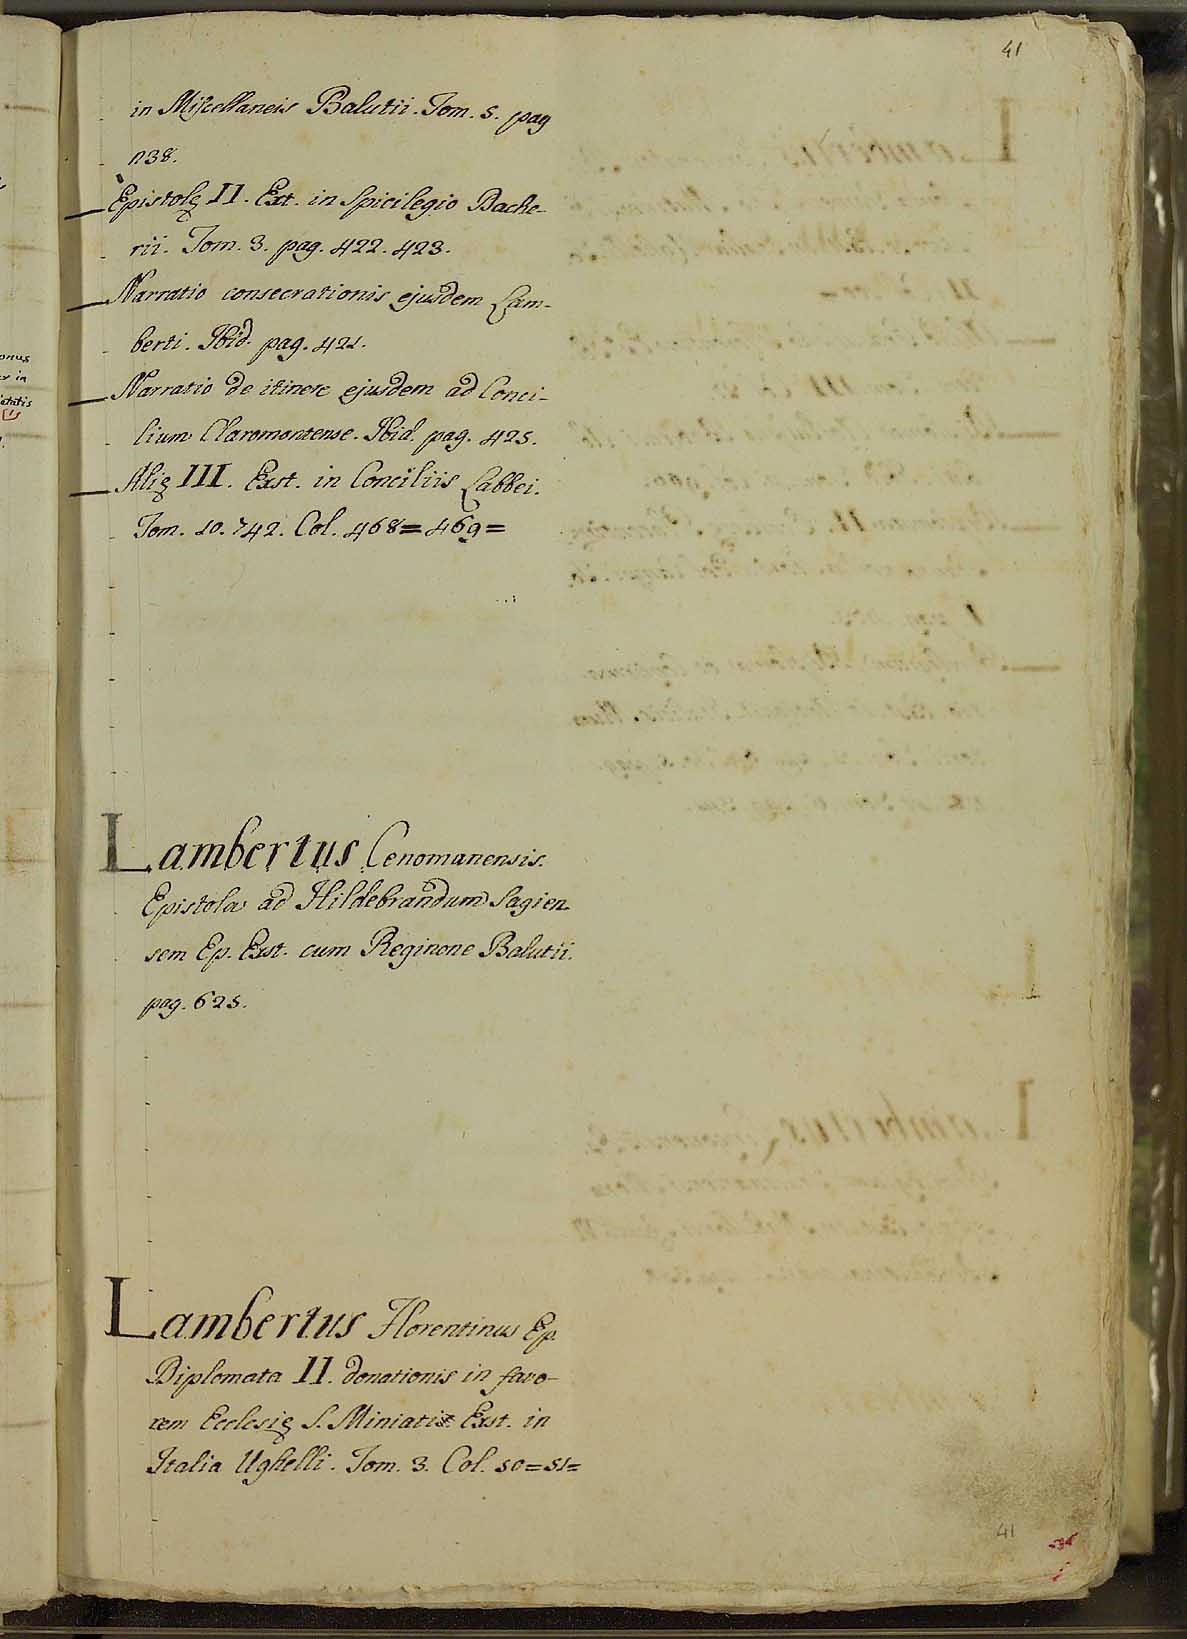 41
in Miscellaneis Balutii. Tom. 5. pag
238.
Epistolę II. Ext. in Spicilegio Dache-
rii. Tom. 3. pag. 422. 423.
Narratio consecrationis ejusdem Lam-
berti. Ibid. pag. 421.
Narratio de itinere ejusdem ad Conci-
lium Claromontense. Ibid. pag. 425.
Alię III. Exst. in Conciliis Labbei.
Tom. 10. 742. Col. 468= 469=
Lambertus Cenomanensis.
Epistola ad Hildebrandum Sagien
sem Ep. Exst. cum Reginone Balutii.
pag. 625.
Lambertus Florentinus Ep.
Diplomata II. donationis in favo-
rem Ecclesię S. Miniatis Exst. in
Italia Ughelli. Tom. 3. Col. 50=51=
41